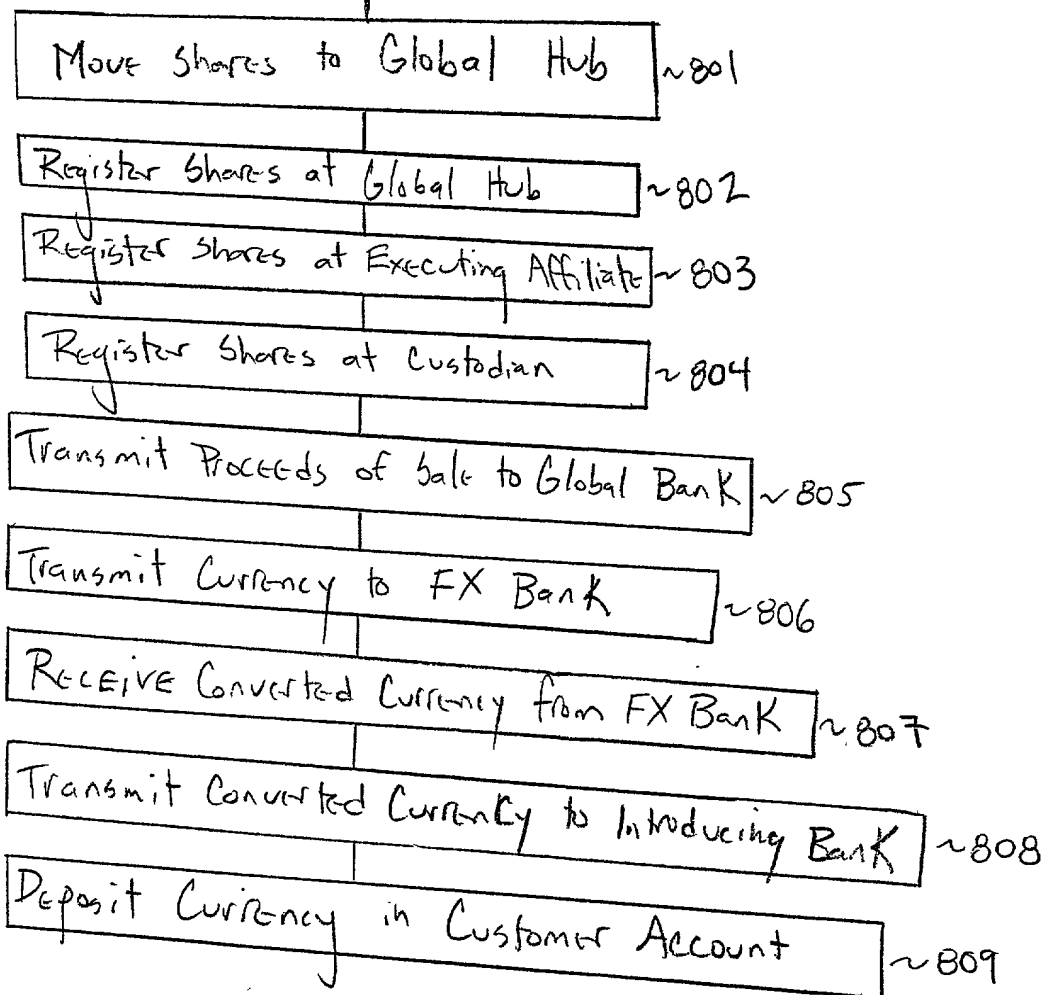 Move Shares to Global Hub ~801
Register Shares at Global Hub ~802
Register Shares at Executing Affiliate ~803
Register Shares at Custodian ~804
Transmit Proceeds of Sale to Global Bank ~805
Transmit Currency to FX Bank ~806
Receive Converted Currency from FX Bank ~807
Transmit Converted Currency to Introducing Bank ~808
Deposit Currency in Customer Account ~809